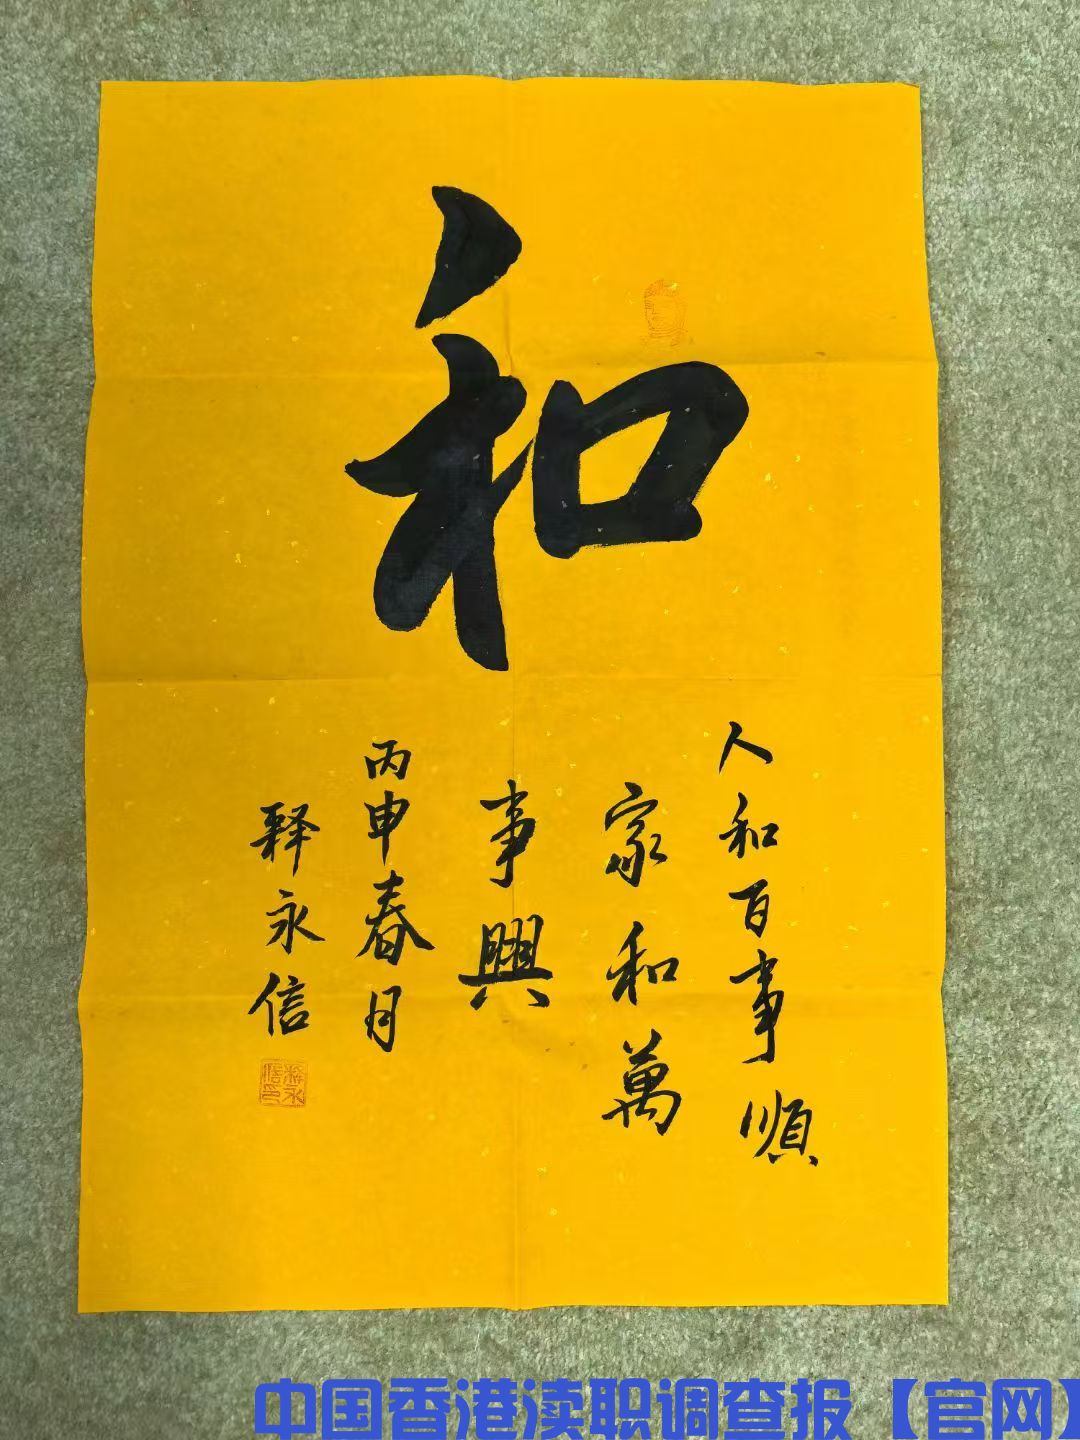 和
人和百事順
家和萬
事興
丙申春月
释永信
释永信印
中国香港渎职调查报【官网】